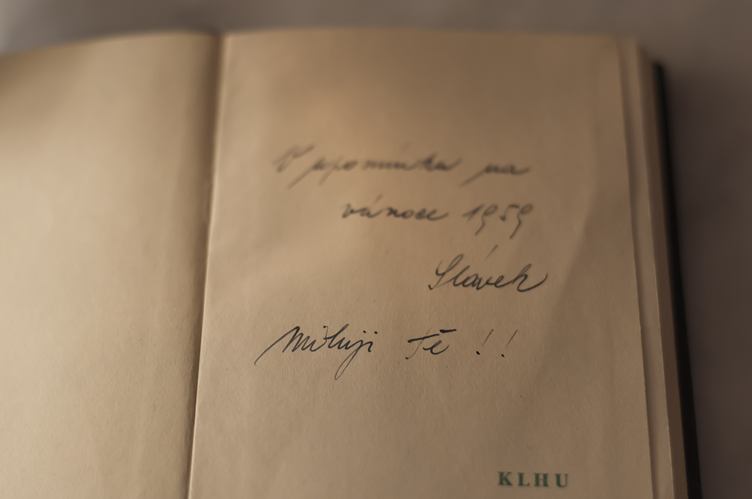 V upomínku na
vánoce 1959
Slávek
Miluji Tě !!
KLHU